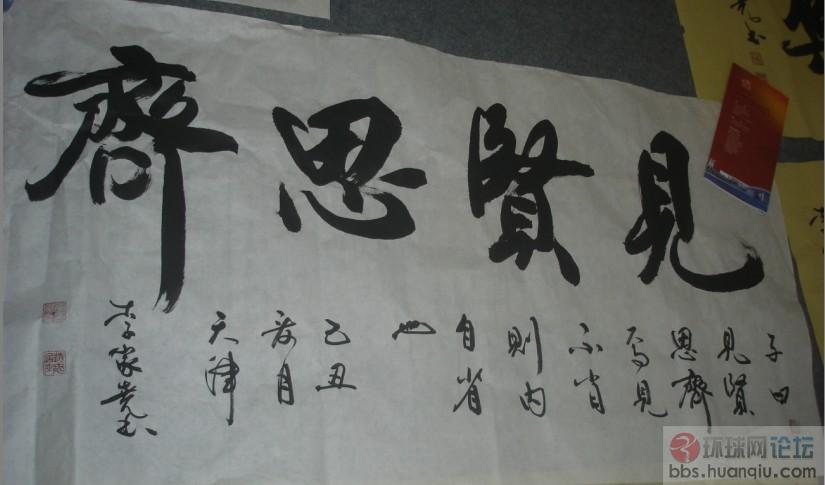 見賢思齊
子曰
見賢
思齊
焉見
不肖
則內
自省
也
乙丑
天津
李家
环球网论坛
bbs.huanqiu.com